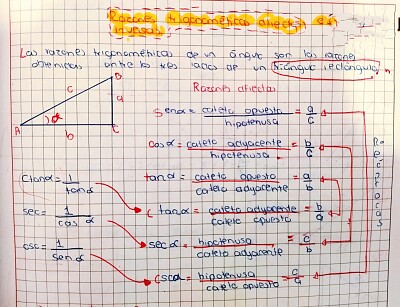 Razones trigonométrica directas e
inversas
Las razones trigonométricas de un ángulo son las razones
obtenidas entre los tres lados de un triángulo rectángulo
Razones directas
B
c
a
A
α
b
C
Sen α = cateto opuesto / hipotenusa = a / c
Cos α = cateto adyacente / hipotenusa = b / c
tan α = cateto opuesto / cateto adyacente = a / b
C tan α = cateto adyacente / cateto opuesto = b / a
sec α = hipotenusa / cateto adyacente = c / b
Csc α = hipotenusa / cateto opuesto = c / a
Ctan α = 1 / tan α
sec = 1 / cos α
csc = 1 / sen α
Recíprocas